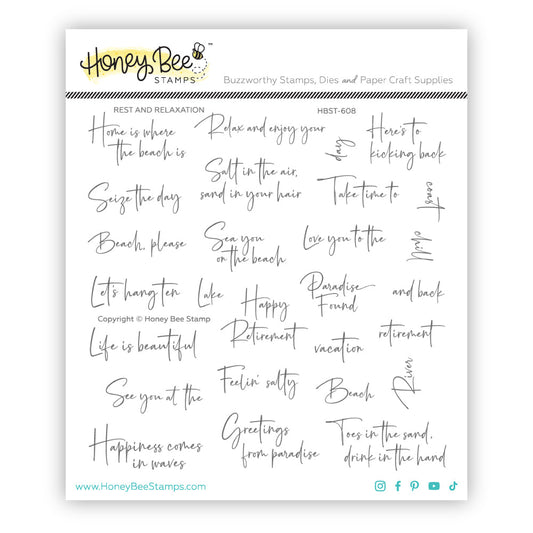 Honey Bee
STAMPS
™
Buzzworthy Stamps, Dies and Paper Craft Supplies
REST AND RELAXATION
HBST-608
Home is where
the beach is
Relax and enjoy your
day
Here's to
kicking back
Salt in the air,
sand in your hair
Seize the day
Take time to
coast
Beach, please
Sea you
on the beach
Love you to the
chill
Let's hang ten
Lake
Happy
Paradise
Found
and back
Copyright © Honey Bee Stamp
Life is beautiful
Retirement
vacation
retirement
See you at the
Feelin' salty
Beach
River
Happiness comes
in waves
Greetings
from paradise
Toes in the sand,
drink in the hand
www.HoneyBeeStamps.com